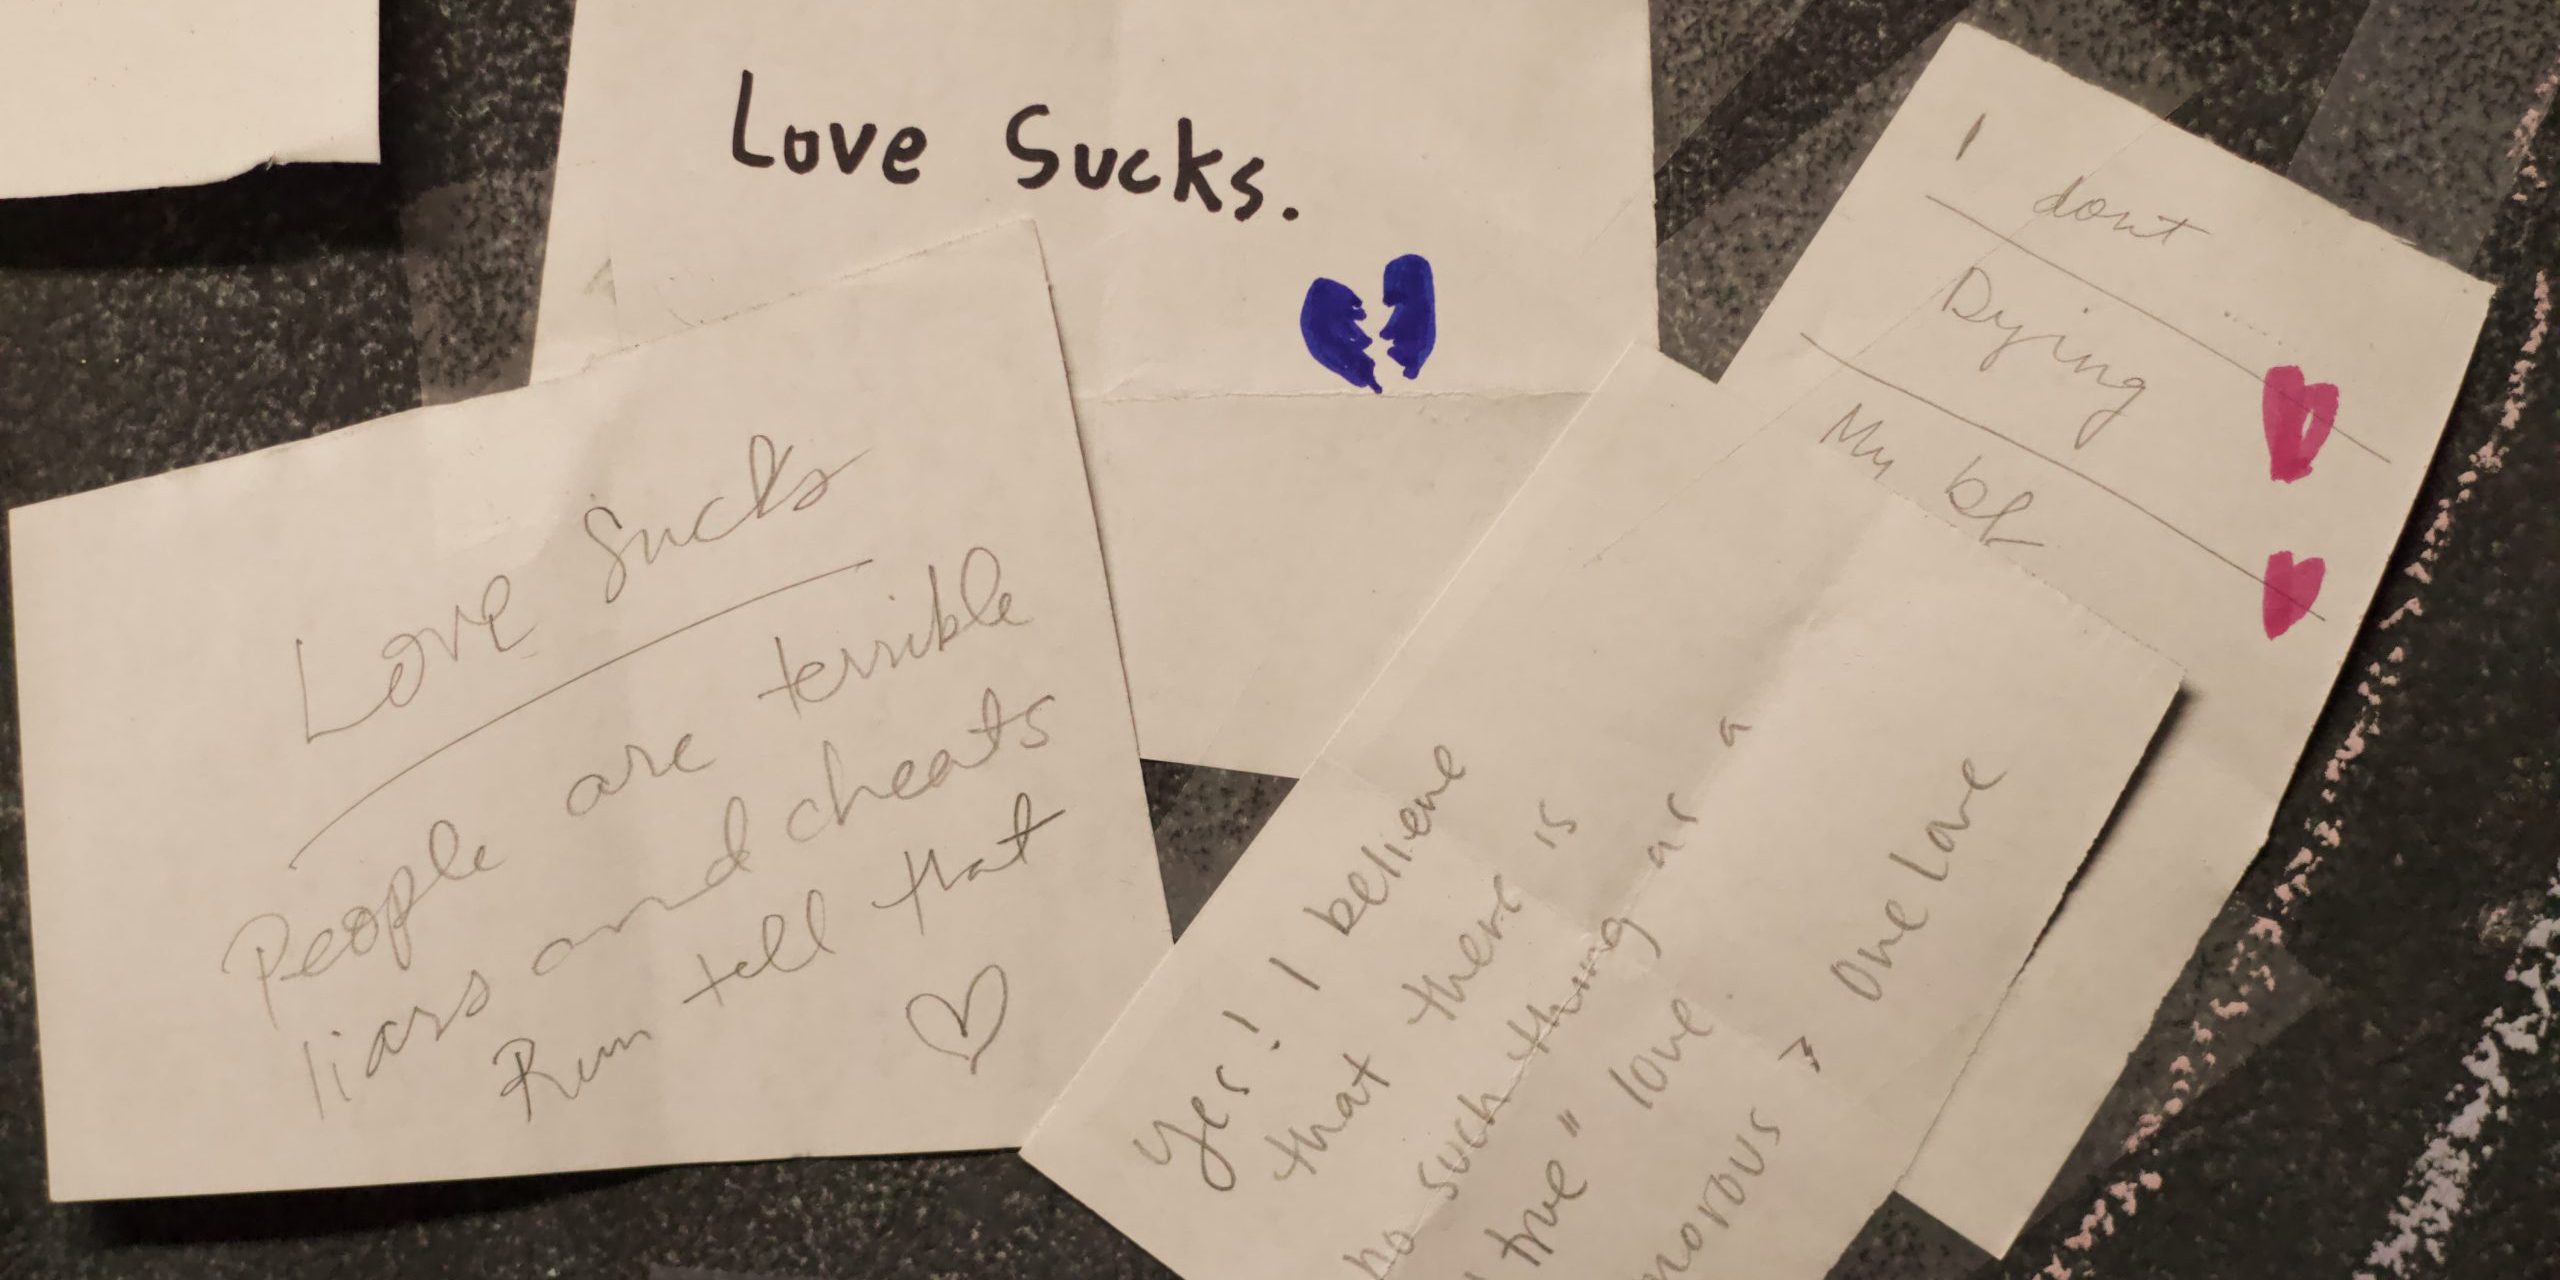 Love Sucks.
Love Sucks
People are terrible
liars and cheats
Run tell that
I
dont
Dying
My bf
Yes! I believe
that there is
no such thing as a
true" love
morous > One Love